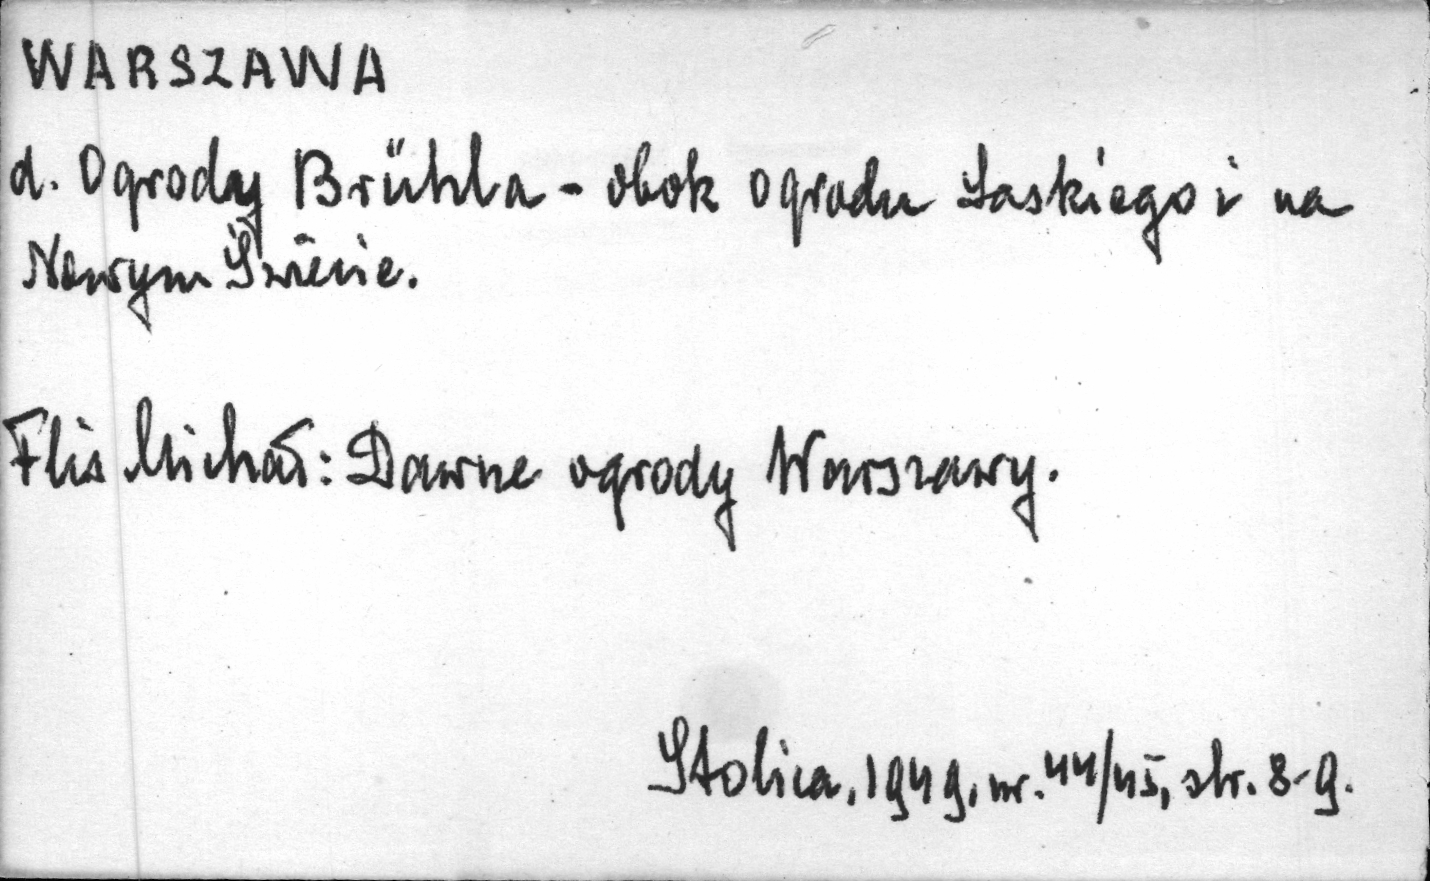 WARSZAWA
d. Ogrody Brühla - obok ogrodu Saskiego i na
Nowym Świecie.
Flis Michał: Dawne ogrody Warszawy.
Stolica, 1949, nr. 44/45, str. 8-9.